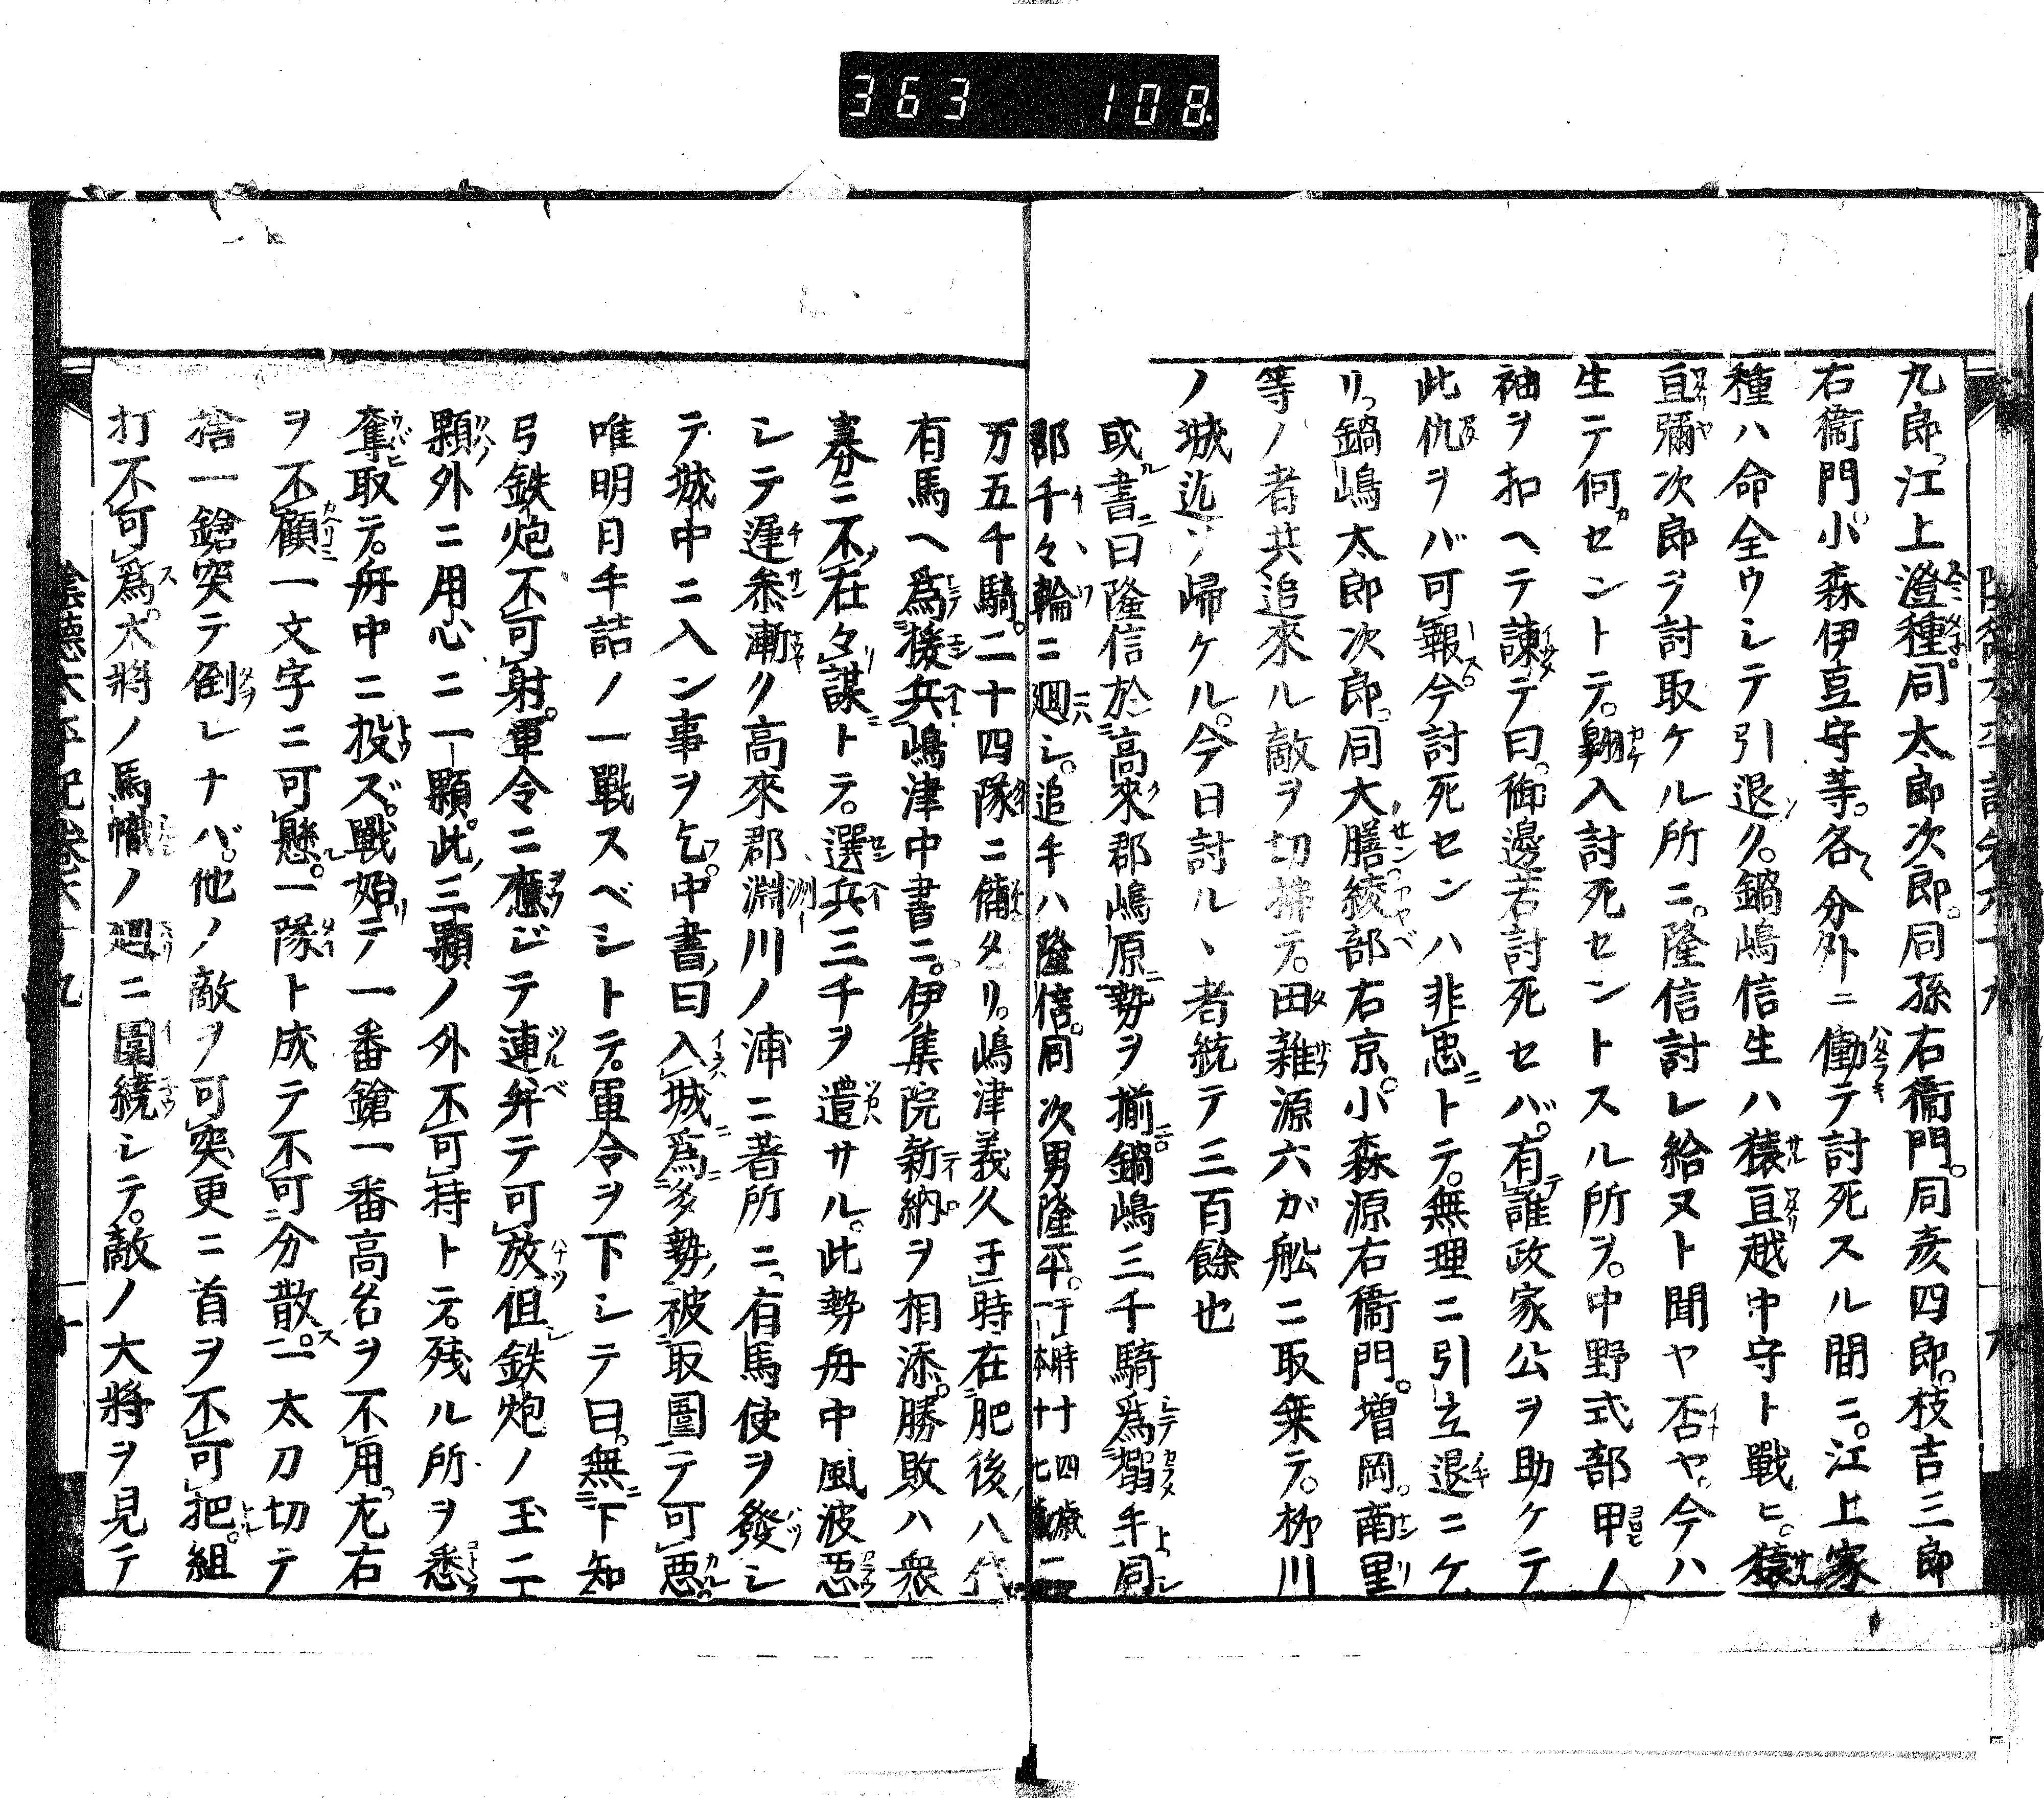 363 108
九郎。江上澄種。同太郎次郎。同孫右衞門。同彦四郎。枝吉三郎
右衞門。小森伊豆守等。各分外ニ働テ討死スル間ニ。江上家
種ハ命全ウシテ引退ク。鍋嶋信生ハ猿亘越中守ト戰ヒ。猿
亘彌次郎ヲ討取ケル所ニ。隆信討レ給ヌト聞ヤ否ヤ。今ハ
生テ何セントテ。翔入討死セントスル所ヲ。中野式部甲ノ
袖ヲ扣ヘテ諫テ曰。御邊若討死セバ。有誰政家公ヲ助ケテ
此仇ヲバ可報。今討死センハ非忠トテ。無理ニ引立退ニケ
リ。鍋嶋太郎次郎。同大膳綾部右京。小森源右衞門。増岡。南里
等ノ者共追來ル敵ヲ切拂テ。田雜源六ガ舩ニ取乗テ。柳川
ノ城迄ソ歸ケル。今日討ルヽ者統テ三百餘也
或書曰隆信於高來郡嶋原勢ヲ揃鍋嶋三千騎爲搦手同
郡千々輪ニ廻シ。追手ハ隆信。同次男隆平。于時十四歳一本十七歳二
万五千騎。二十四隊ニ備タリ。嶋津義久于時在肥後八代
有馬ヘ爲援兵嶋津中書ニ。伊集院新納ヲ相添。勝敗ハ衆
寡ニ不在タ謀トテ。選兵三千ヲ遣サル。此勢舟中風波惡
シテ遲參漸ク高來郡淵川ノ浦ニ著所ニ、有馬使ヲ發シ
テ城中ニ入ン事ヲ乞。中書曰入城爲多勢被取圍テ可惡
唯明日手詰ノ一戰スベシトテ。軍令ヲ下シテ曰。無下知
弓鉄炮不可射。軍令ニ應ジテ連弁テ可放。但鉄炮ノ玉二
顆外ニ用心ニ一顆。此三顆ノ外不可持トテ。残ル所ヲ悉
奪取テ。舟中ニ投ズ。戰始テ一番鎗一番高名ヲ不用。左右
ヲ不顧一文字ニ可懸。一隊ト成テ不可分散。一太刀切テ
捨一鎗突テ倒レナバ。他ノ敵ヲ可突更ニ首ヲ不可把。組
打不可爲。大將ノ馬幟ノ廻ニ圍繞シテ。敵ノ大將ヲ見テ